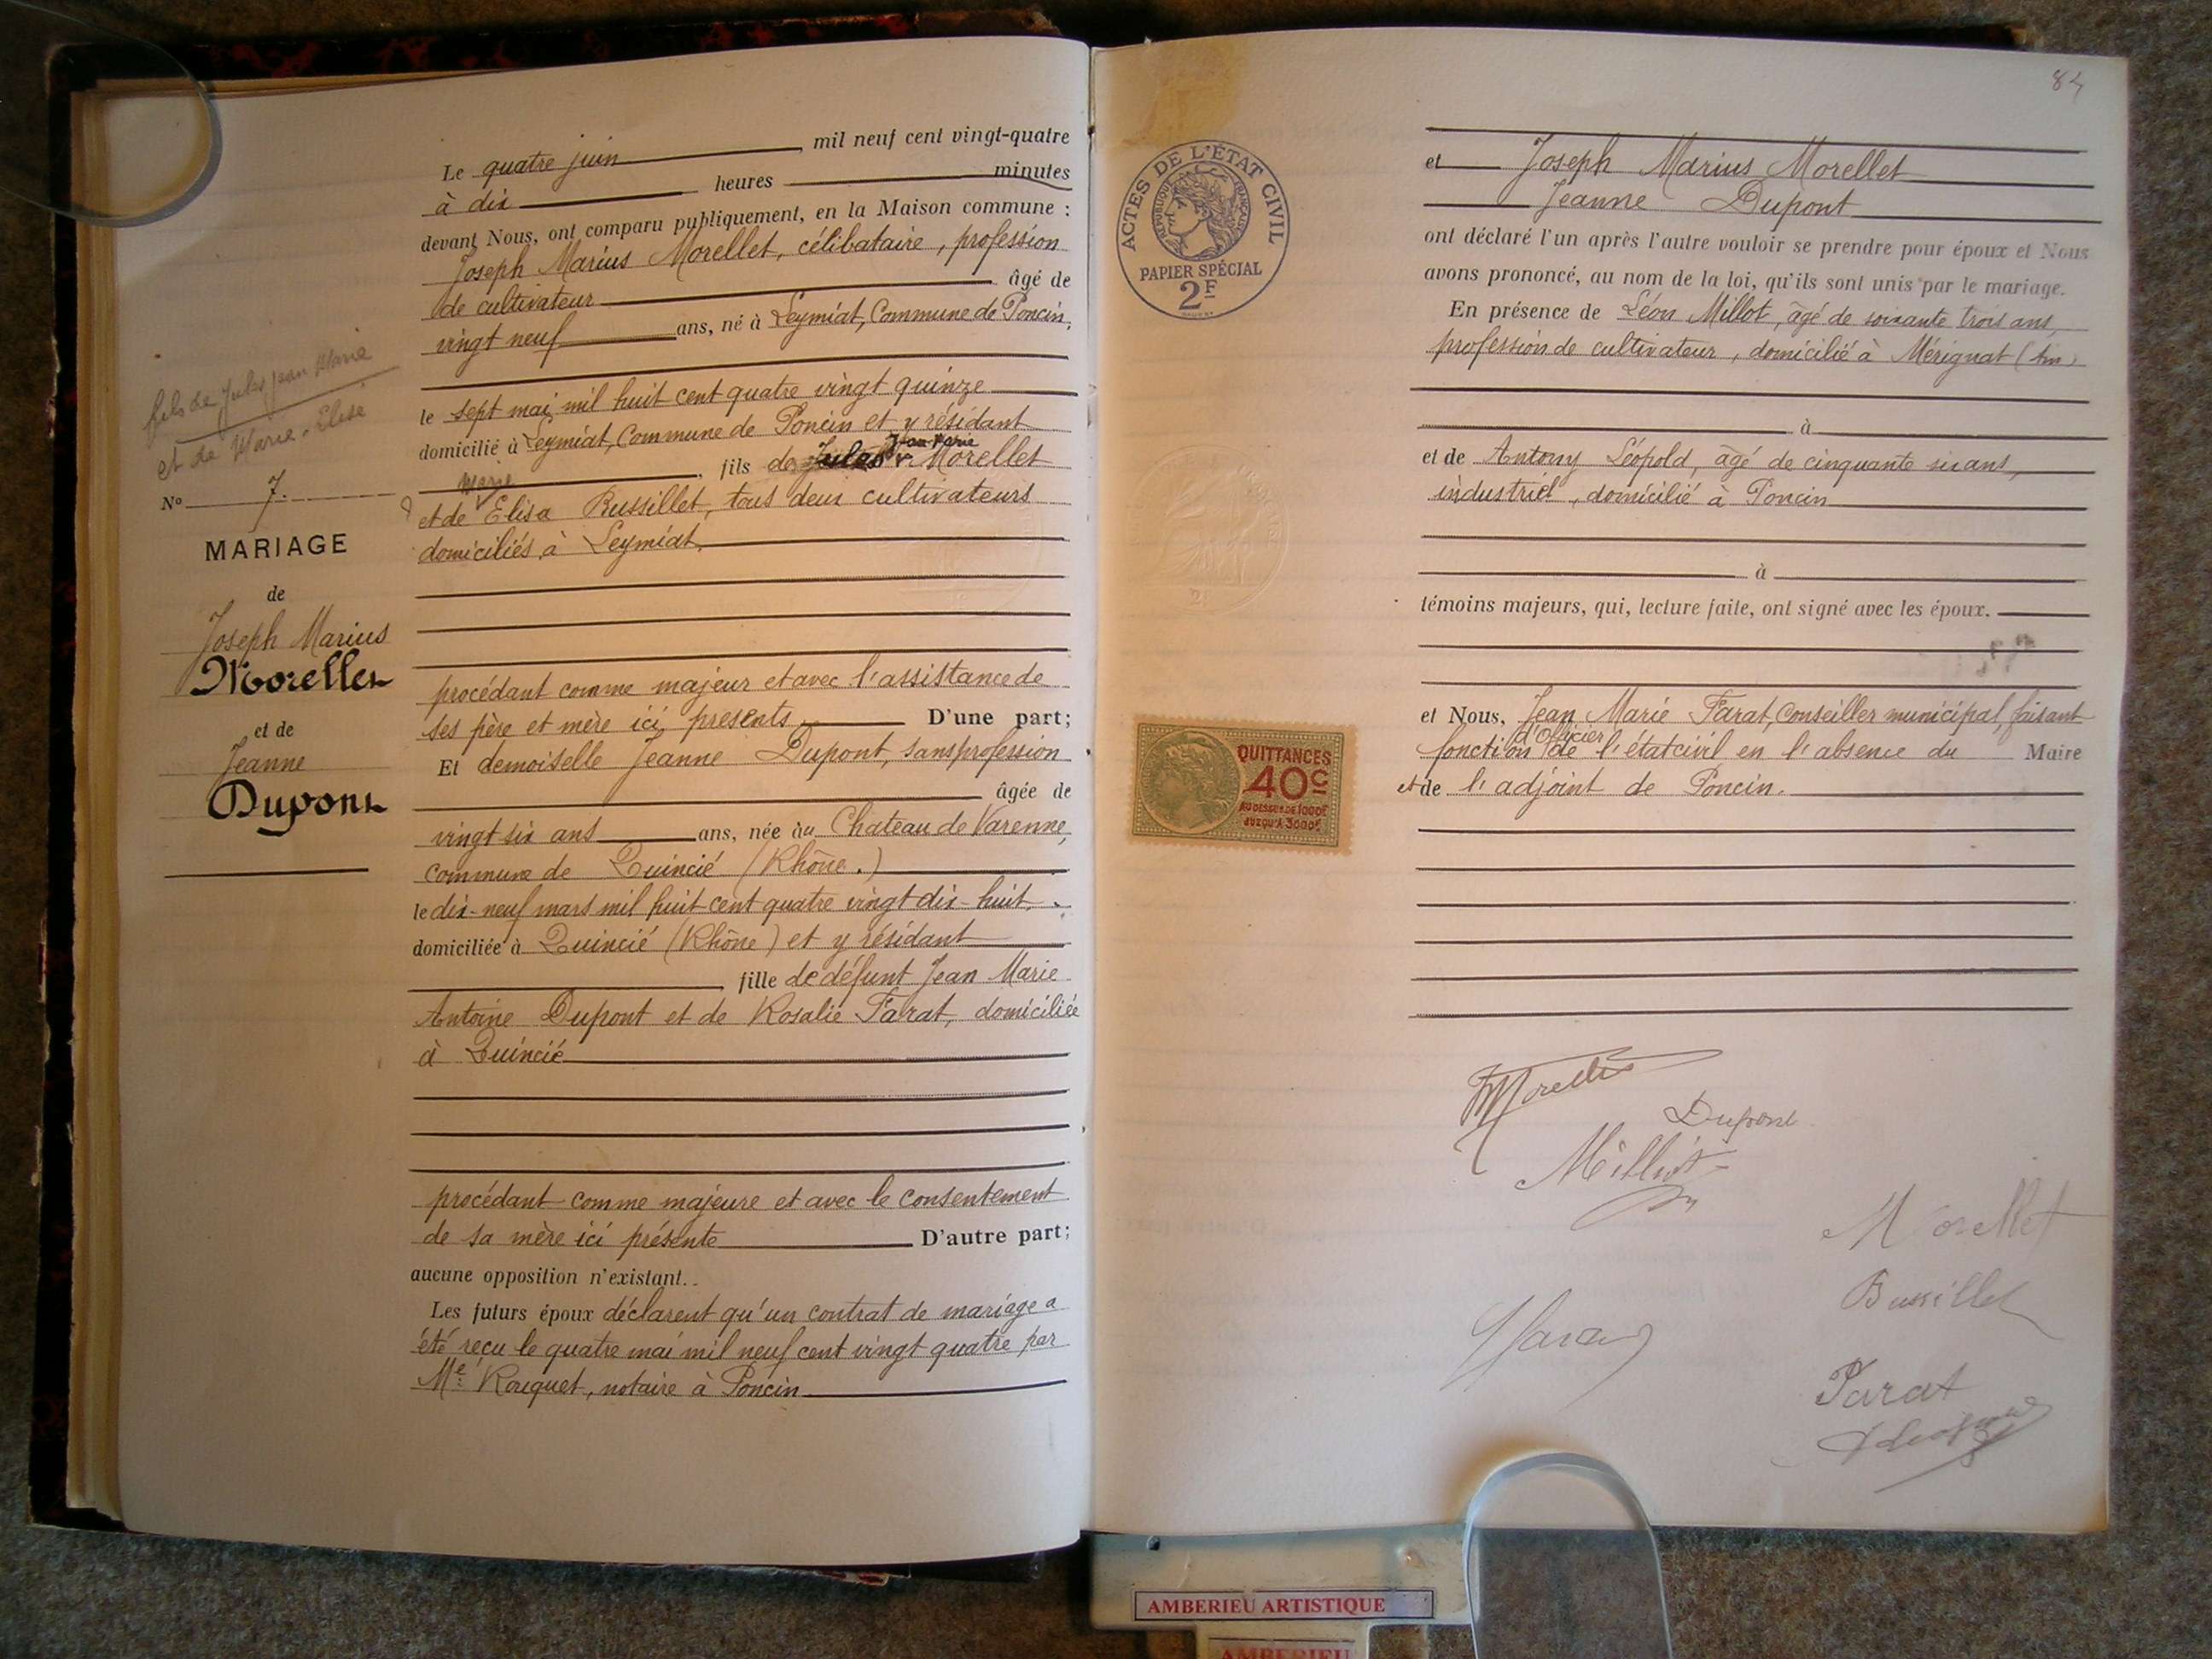 fils de Jules Jean Marie
et de Marie-Elise
N° 7.
MARIAGE
de
Joseph Marius
Morellet
et de
Jeanne
Dupont
Le quatre juin, mil neuf cent vingt-quatre
à dix heures minutes
devant Nous, ont comparu publiquement, en la Maison commune :
Joseph Marius Morellet, célibataire, profession
de cultivateur âgé de
vingt neuf ans, né à Leymiat, Commune de Poncin,
le sept mai mil huit cent quatre vingt quinze
domicilié à Leymiat, Commune de Poncin et y résidant
Jean Marie
, fils de Jules Morellet
Marie
et de Elisa Bussillet, tous deux cultivateurs
domiciliés à Leymiat.
procédant comme majeur et avec l'assistance de
ses père et mère ici presents D'une part;
Et demoiselle Jeanne Dupont, sans profession
âgée de
vingt six ans ans, née au Chateau de Varenne,
commune de Quincié (Rhône.)
le dix-neuf mars mil huit cent quatre vingt dix-huit.
domiciliée à Quincié (Rhône) et y résidant
, fille de défunt Jean Marie
Antoine Dupont et de Rosalie Farat, domiciliée
à Quincié
procédant comme majeure et avec le consentement
de sa mère ici présente D'autre part;
aucune opposition n'existant.
Les futurs époux déclarent qu'un contrat de mariage a
été reçu le quatre mai mil neuf cent vingt quatre par
Me Rouquet, notaire à Poncin
84
ACTES DE L'ÉTAT CIVIL
RÉPUBLIQUE FRANÇAISE
PAPIER SPÉCIAL
2F
QUITTANCES
40c
AU DESSUS DE 1000F
JUSQU'À 3000F
et Joseph Marius Morellet
Jeanne Dupont
ont déclaré l'un après l'autre vouloir se prendre pour époux et Nous
avons prononcé, au nom de la loi, qu'ils sont unis par le mariage.
En présence de Léon Millot, âgé de soixante trois ans,
profession de cultivateur, domicilié à Mérignat (Ain)
à
et de Antony Léopold, âgé de cinquante six ans,
industriel, domicilié à Poncin
à
témoins majeurs, qui, lecture faite, ont signé avec les époux.
et Nous, Jean Marie Farat, Conseiller municipal, faisant
d'Officier
fonction de l'état civil en l'absence du Maire
et de l'adjoint de Poncin.
Morellet
Dupont
Millot
Morellet
Bussillet
Farat
AMBERIEU ARTISTIQUE
AMBERIEU